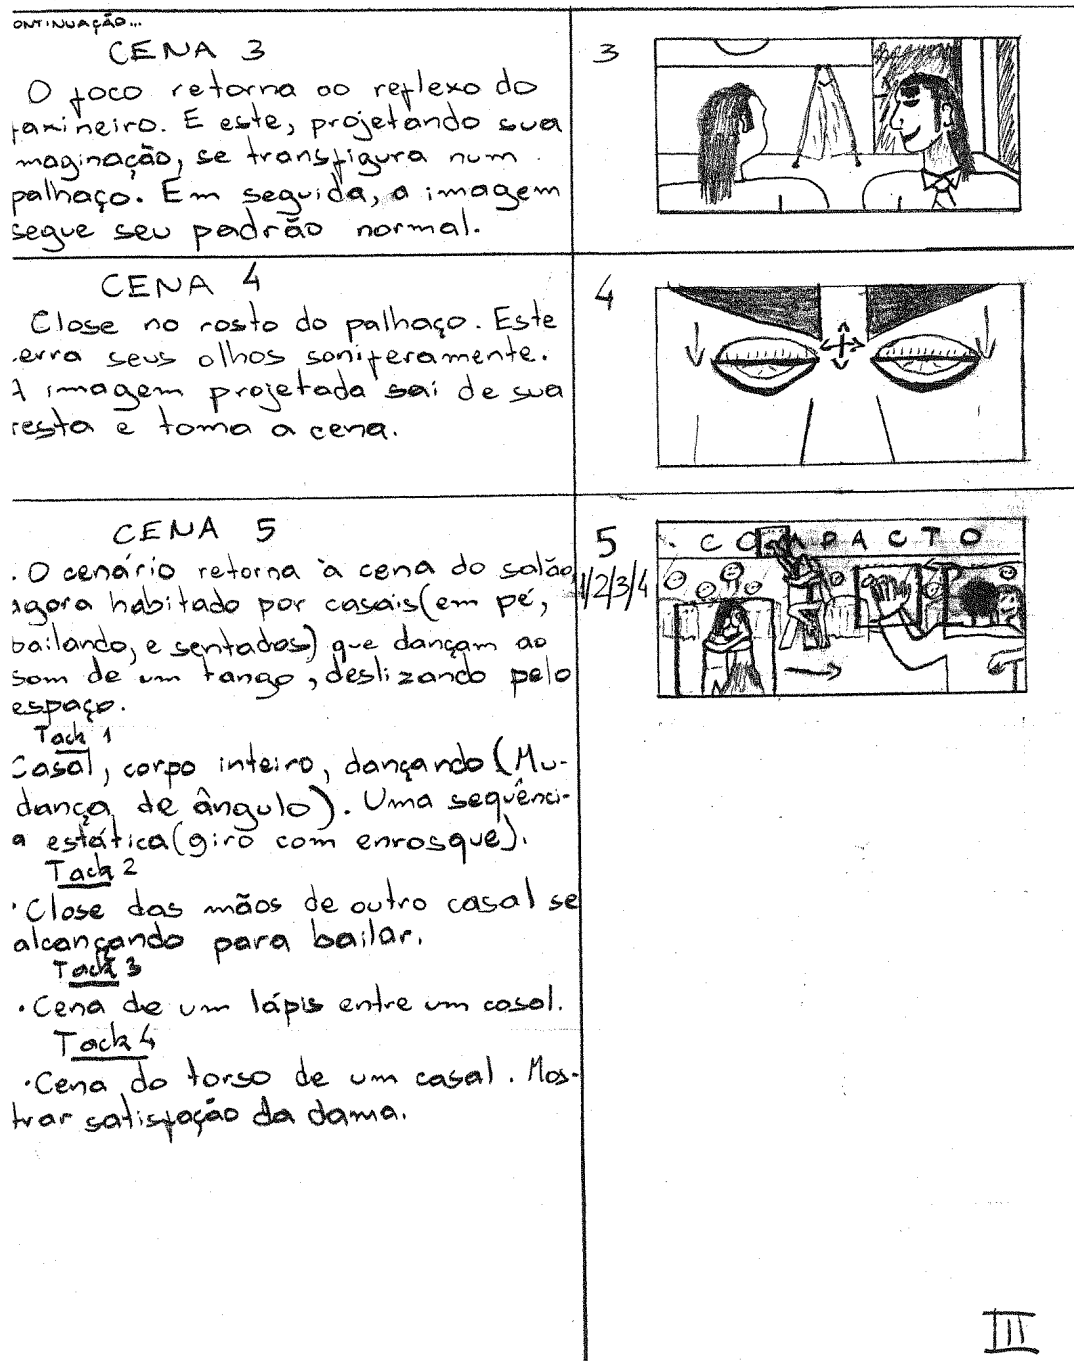 ONTINUAÇÃO...
CENA 3
O foco retorna ao reflexo do
faxineiro. E este, projetando sua
maginação, se transfigura num
palhaço. Em seguida, a imagem
segue seu padrão normal.
3
CENA 4
Close no rosto do palhaço. Este
erra seus olhos soniferamente.
A imagem projetada sai de sua
testa e toma a cena.
4
CENA 5
. O cenário retorna à cena do salão,
agora habitado por casais (em pé,
bailando, e sentados) que dançam ao
som de um tango, deslizando pelo
espaço.
Tack 1
Casal, corpo inteiro, dançando (Mu-
dança de ângulo). Uma sequênci-
a estática (giro com enrosque).
Tack 2
. Close das mãos de outro casal se
alcançando para bailar.
Tack 3
. Cena de um lápis entre um casal.
Tack 4
. Cena do torso de um casal. Mos-
trar satisfação da dama.
5
1/2/3/4
COMPACTO
III